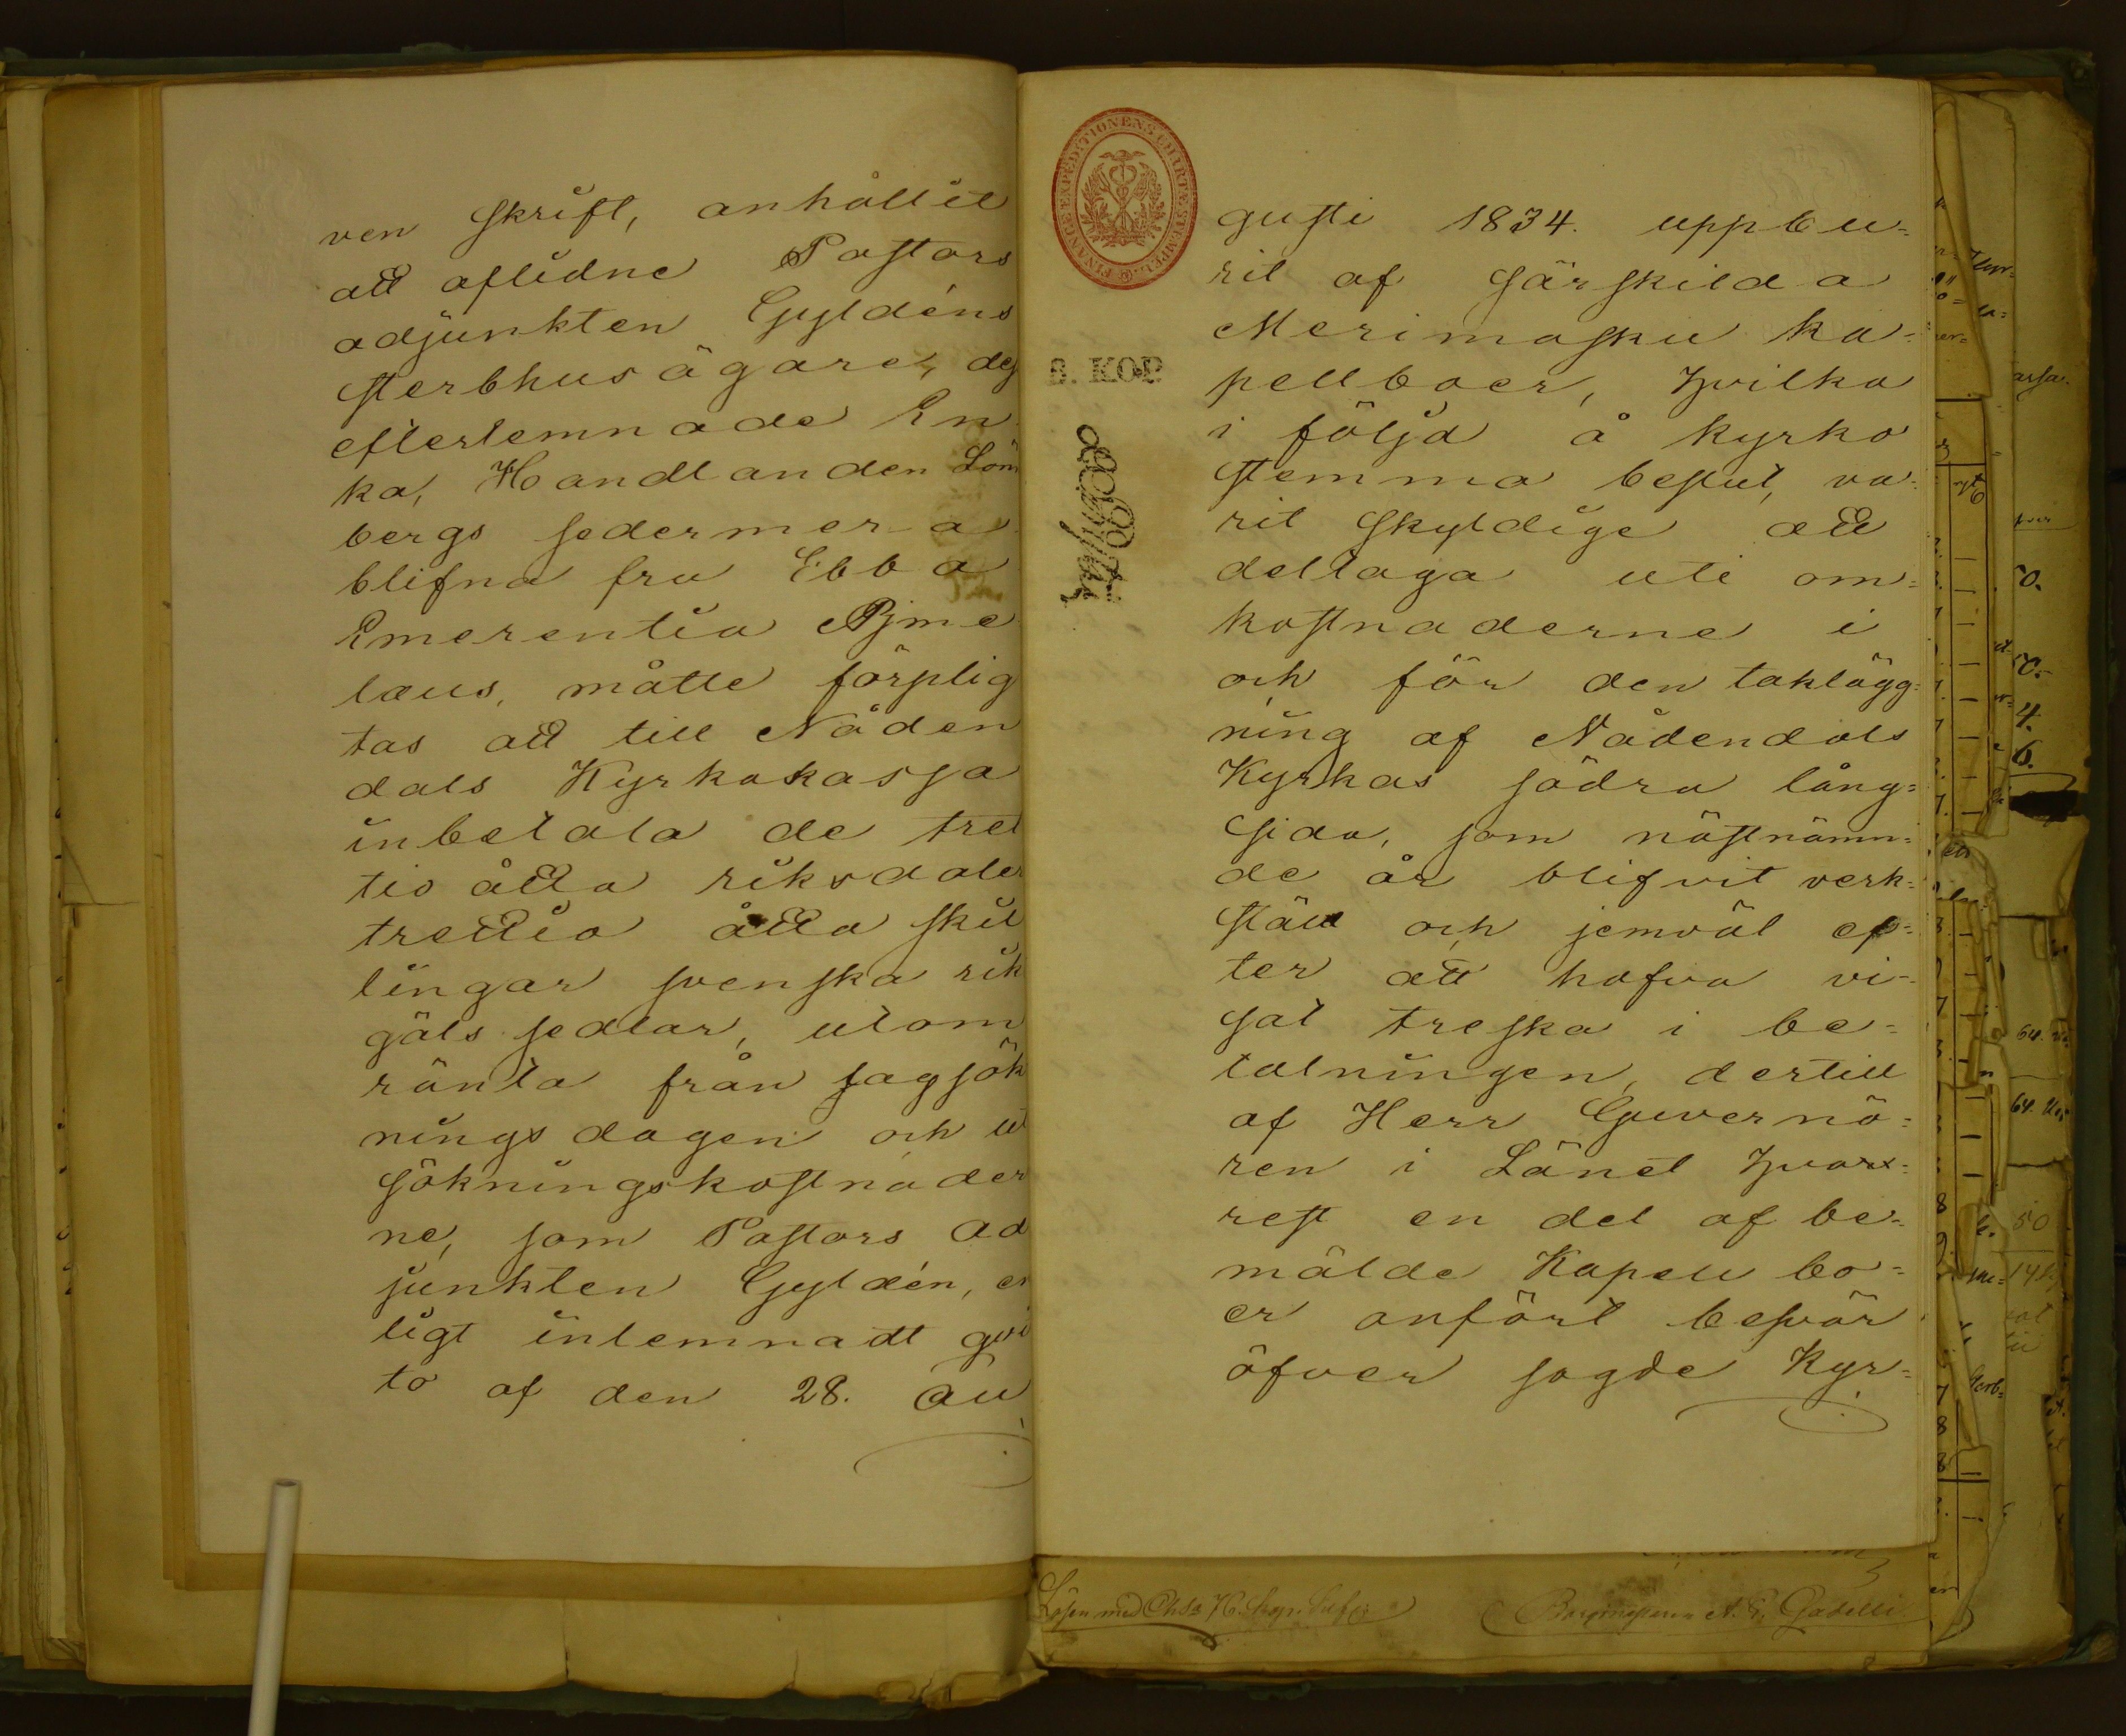 ven skrift, anhållit
att aflidne Pastors
adjunkten Gyldéns
sterbhusägare, des
efterlemnade En
ka, Handlanden Löm
bergs sedermera
blifna fru Ebba
Emerentia Pjme
læus, måtte förplig
tas att till Nåden
dals Kyrkokassa
inbetala de tret
tio åtta riksdaler
trettio åtta skil
lingar svenska rik
gäls sedlar, utom
ränta från sagsök
nings dagen och ut
sökningskostnader
ne, som Pastors ad
junkten Gyldén, en
ligt inlemnadt qvi
to af den 28. Au
FINANCE EXPEDITIONENS CHARTÆ STEMPEL
8. KOP
gusti 1834. uppbu=
rit af särskilda
Merimasku ka=
pellboer, hvilka
i följd å kyrko
stemma beslut, va=
rit skyldige att
deltaga uti om=
kostnaderne i
och för den taklägg=
ning af Nådendals
Kyrkas södra lång=
sida, som nästnämn=
de år blifvit verk=
stäld och jemväl ef=
ter att hafva vi=
sat treska i be=
talningen, dertill
af Herr Guvernö=
ren i Länet hvar=
rest en del af be=
mälde Kapell bo=
er anfört besvär
öfver sagde Kyr=
Lösen med
A. G. Gadelli